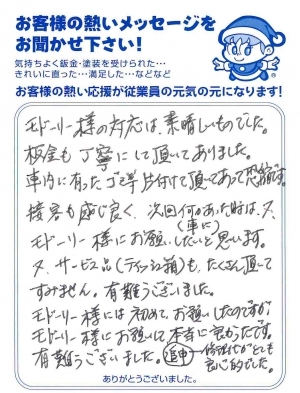 お客様の熱いメッセージを
お聞かせ下さい!
気持ちよく鈑金・塗装を受けられた…
きれいに直った…満足した…などなど
お客様の熱い応援が従業員の元気の元になります!
モドーリー様の対応は、素晴しいものでした。
板金も丁寧にして頂いてありました。
車内に有ったゴミ等片付けて頂てあって恐縮です。
接客も感じ良く、次回何かあった時は、又、
(車に)
モドーリー様にお願いしたいと思います。
又、サービス品(ティッシュ箱)も、たくさん頂いて
すみません。有難うございました。
モドーリー様には初めてお願いしたのですが
モドーリー様にお願いして本当に良かったです。
有難うございました。追申 修理代がとても
良心的でした。
ありがとうございました。